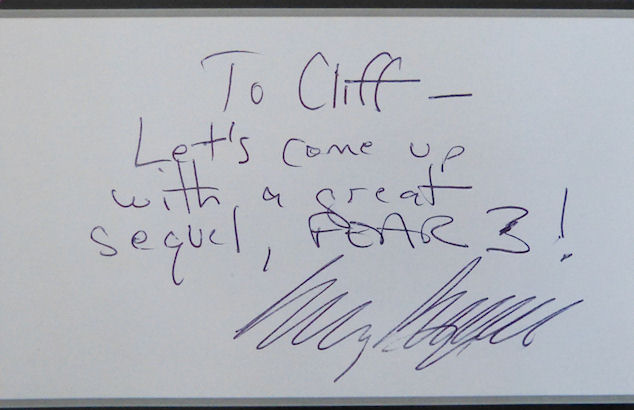 To Cliff —
Let's come up
with a great
sequel, FEAR 3!